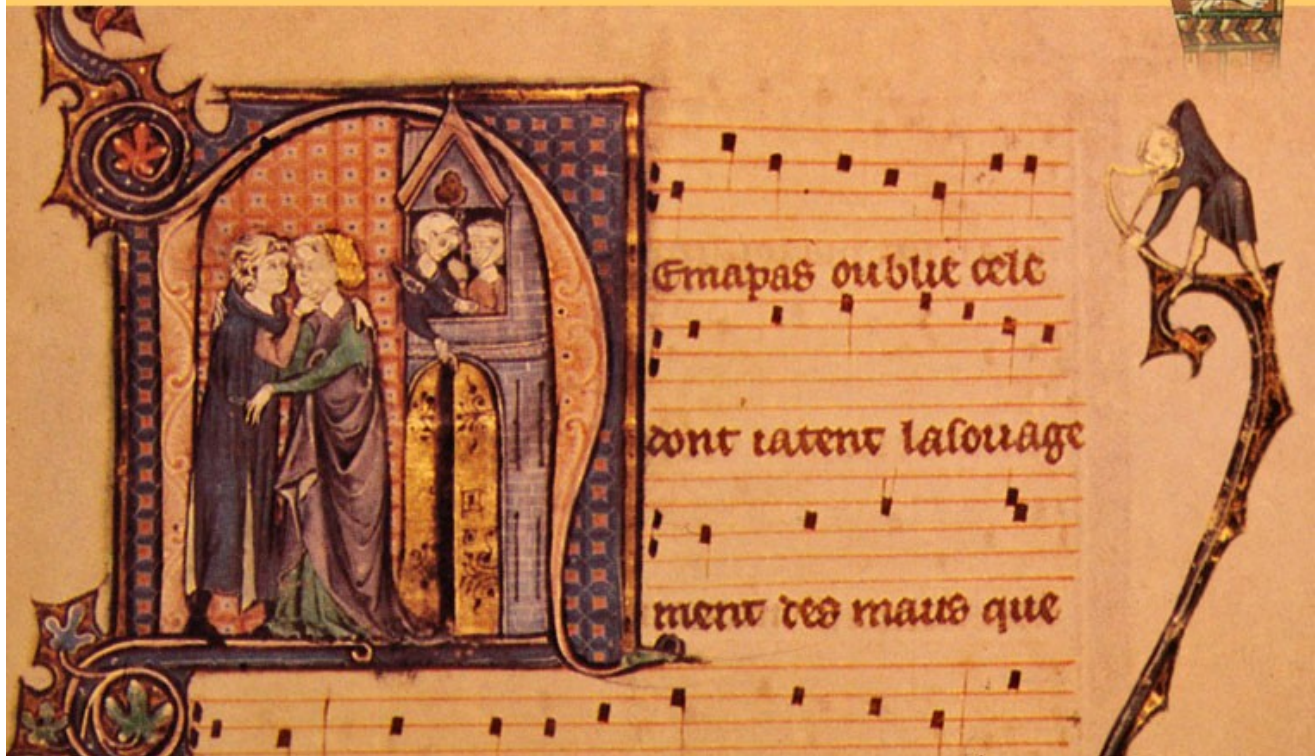 NEmapas oublie cele
dont iatent lasouage
ment des maus que